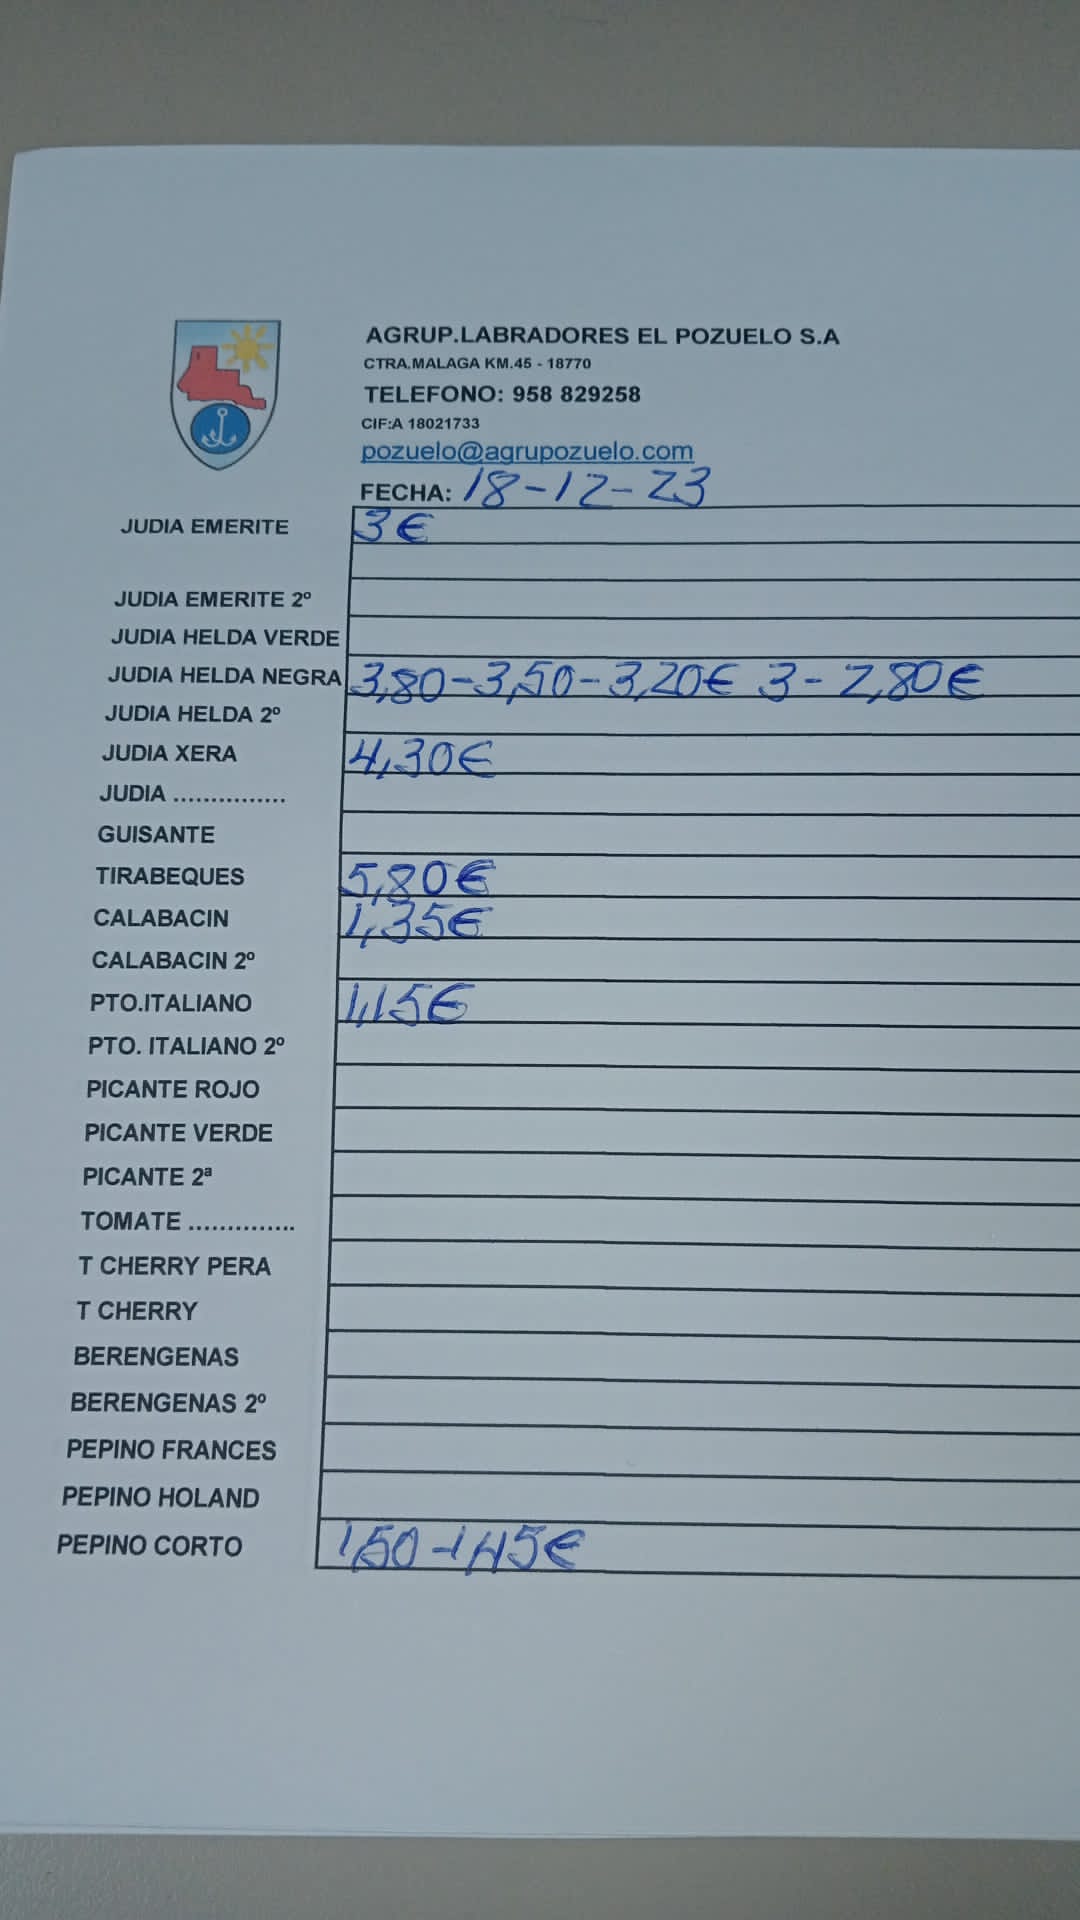 AGRUP.LABRADORES EL POZUELO S.A
CTRA.MALAGA KM.45 - 18770
TELEFONO: 958 829258
CIF:A 18021733
pozuelo@agrupozuelo.com
FECHA: 18-12-23
JUDIA EMERITE 3€
JUDIA EMERITE 2º
JUDIA HELDA VERDE
JUDIA HELDA NEGRA 3,80-3,50-3,20€ 3- 2,80€
JUDIA HELDA 2º
JUDIA XERA 4,30€
JUDIA ...............
GUISANTE
TIRABEQUES 5,80€
CALABACIN 1,35€
CALABACIN 2º
PTO.ITALIANO 1,15€
PTO. ITALIANO 2º
PICANTE ROJO
PICANTE VERDE
PICANTE 2ª
TOMATE ..............
T CHERRY PERA
T CHERRY
BERENGENAS
BERENGENAS 2º
PEPINO FRANCES
PEPINO HOLAND
PEPINO CORTO 1,50-1,45€